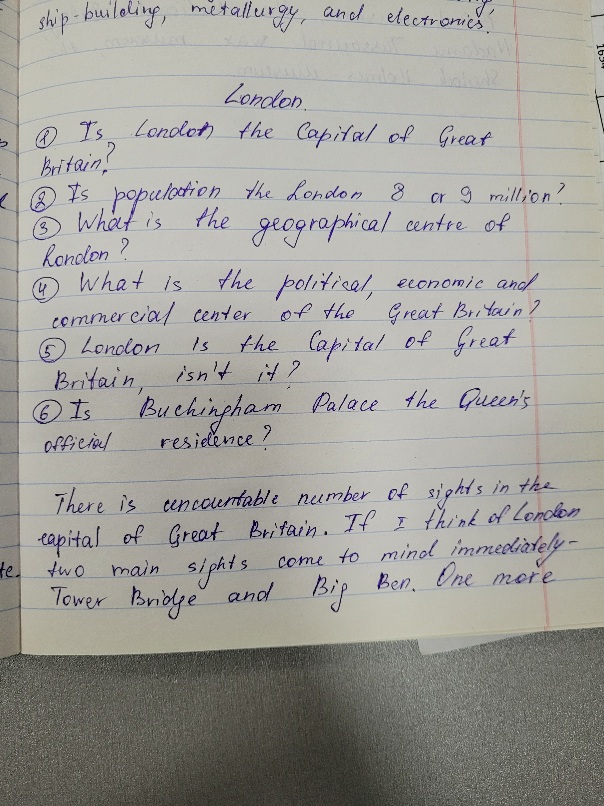 ship-building, metallurgy, and electronics.
London.
① Is London the Capital of Great
Britain?
② Is population the London 8 or 9 million?
③ What is the geographical centre of
London?
④ What is the political, economic and
commercial center of the Great Britain?
⑤ London Is the Capital of Great
Britain, isn't it?
⑥ Is Buckingham Palace the Queen's
official residence?
There is uncountable number of sights in the
capital of Great Britain. If I think of London
two main sights come to mind immediately-
Tower Bridge and Big Ben. One more